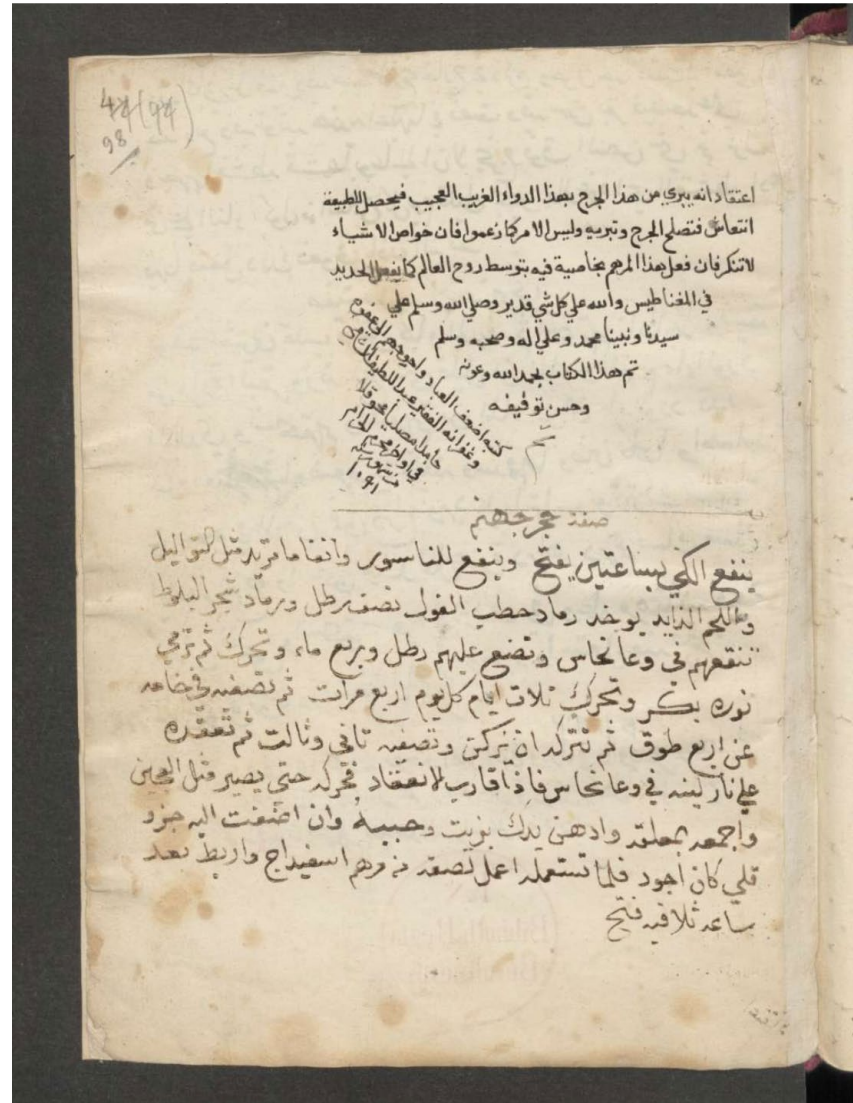 98
اعتقاد انه يبري من هذا الجرح بهذا الدواء الغريب العجيب فيحصل للطبيعة
انتعاش فتصلح الجرح وتبريه وليس الامر كما زعموا فان خواص الاشياء
لا تنكر فان فعل هذا المرهم بخاصية فيه بتوسط روح العالم كما يفعل الحديد
في المغناطيس والله علي كل شي قدير وصلي الله وسلم علي
سيدنا ونبينا محمد وعلي اله وصحبه وسلم
تم هذا الكتاب بحمد الله وعونه
وحسن توفيقه
كتبه اضعف العباد واحوجهم الي عفوه
وغفرانه الفقير عبد اللطيف
حامدا مصليا محوقلا
في اواخر محرم الحرام
من شهور سنة
١٠٩١
صفة حجر جهنم
ينفع الكي بساعتين يفتح وينفع للناسور وانفا ما تريد مثل التواليل
واللحم الزايد يوخد رماد حطب الفول نصف رطل ورماد شجر البلوط
تنقعهم في وعا نحاس وتضع عليهم رطل وربع ماء وتحرك ثم ترمي
نوره بكر وتحرك تلات ايام كل يوم اربع مرات ثم تصفيه في خامه
عن اربع طوق ثم تتركه ان يركن وتصفيه تاني وتالت ثم تعقده
علي نار لينه في وعا نحاس فاذا قارب الانعقاد فحركه حتى يصير مثل العجين
واجمعه بمعلقه وادهن يدك بزيت وحببه وان اضفت اليه جزو
قلي كان اجود فلما تستعمله اعمل لصقه من مرهم اسفيداج واربط بعد
ساعه تلاقيه فتح